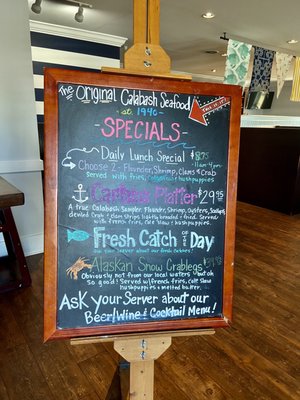 The Original Calabash Seafood
at. 1940
SPECIALS
Daily Lunch Special $8.75
Choose 2 - Flounder, Shrimp, Clams & Crab
11am - 4pm
Served with fries, Coleslaw & hushpuppies
Captains Platter $29.95
A true Calabash. Flounder, Shrimp, Oysters, Scallops,
deviled Crab & clam strips lightly breaded & fried. Served
with fries, Cole Slaw & hushpuppies.
Fresh Catch of Day
ask your Server about our fresh catches!
Alaskan Snow Crablegs
Obviously not from our local waters but oh
so good! Served w/french fries, Cole Slaw
hushpuppies & melted butter.
Ask your Server about our
Beer/Wine & Cocktail Menu!